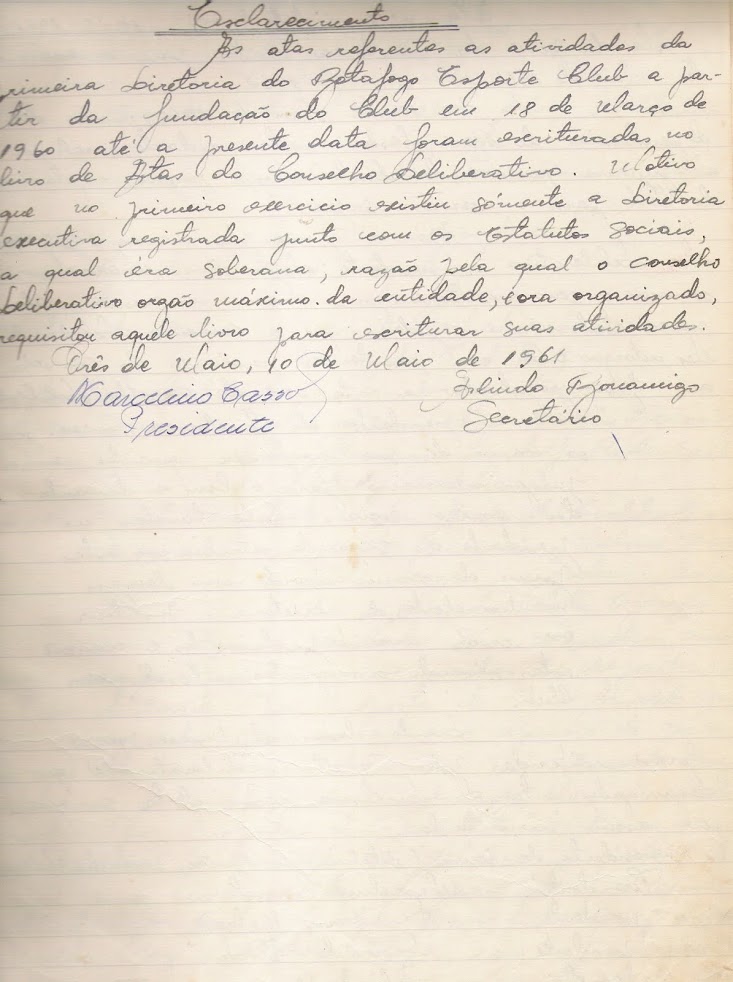 Esclarecimento
As atas referentes as atividades da
primeira Diretoria do Botafogo Esporte Club a par-
tir da fundação do Club em 18 de Março de
1960 até a presente data foram escrituradas no
livro de Atas do Conselho Deliberativo. Motivo
que no primeiro exercicio existiu sómente a Diretoria
executiva registrada junto com os Estatutos Sociais,
a qual éra soberana, razão pela qual o conselho
Deliberativo orgão máximo da entidade, ora organizado,
requisitou aquele livro para escriturar suas atividades.
Três de Maio, 10 de Maio de 1961
Marcelino Casso Arlindo Bonamigo
Presidente Secretário